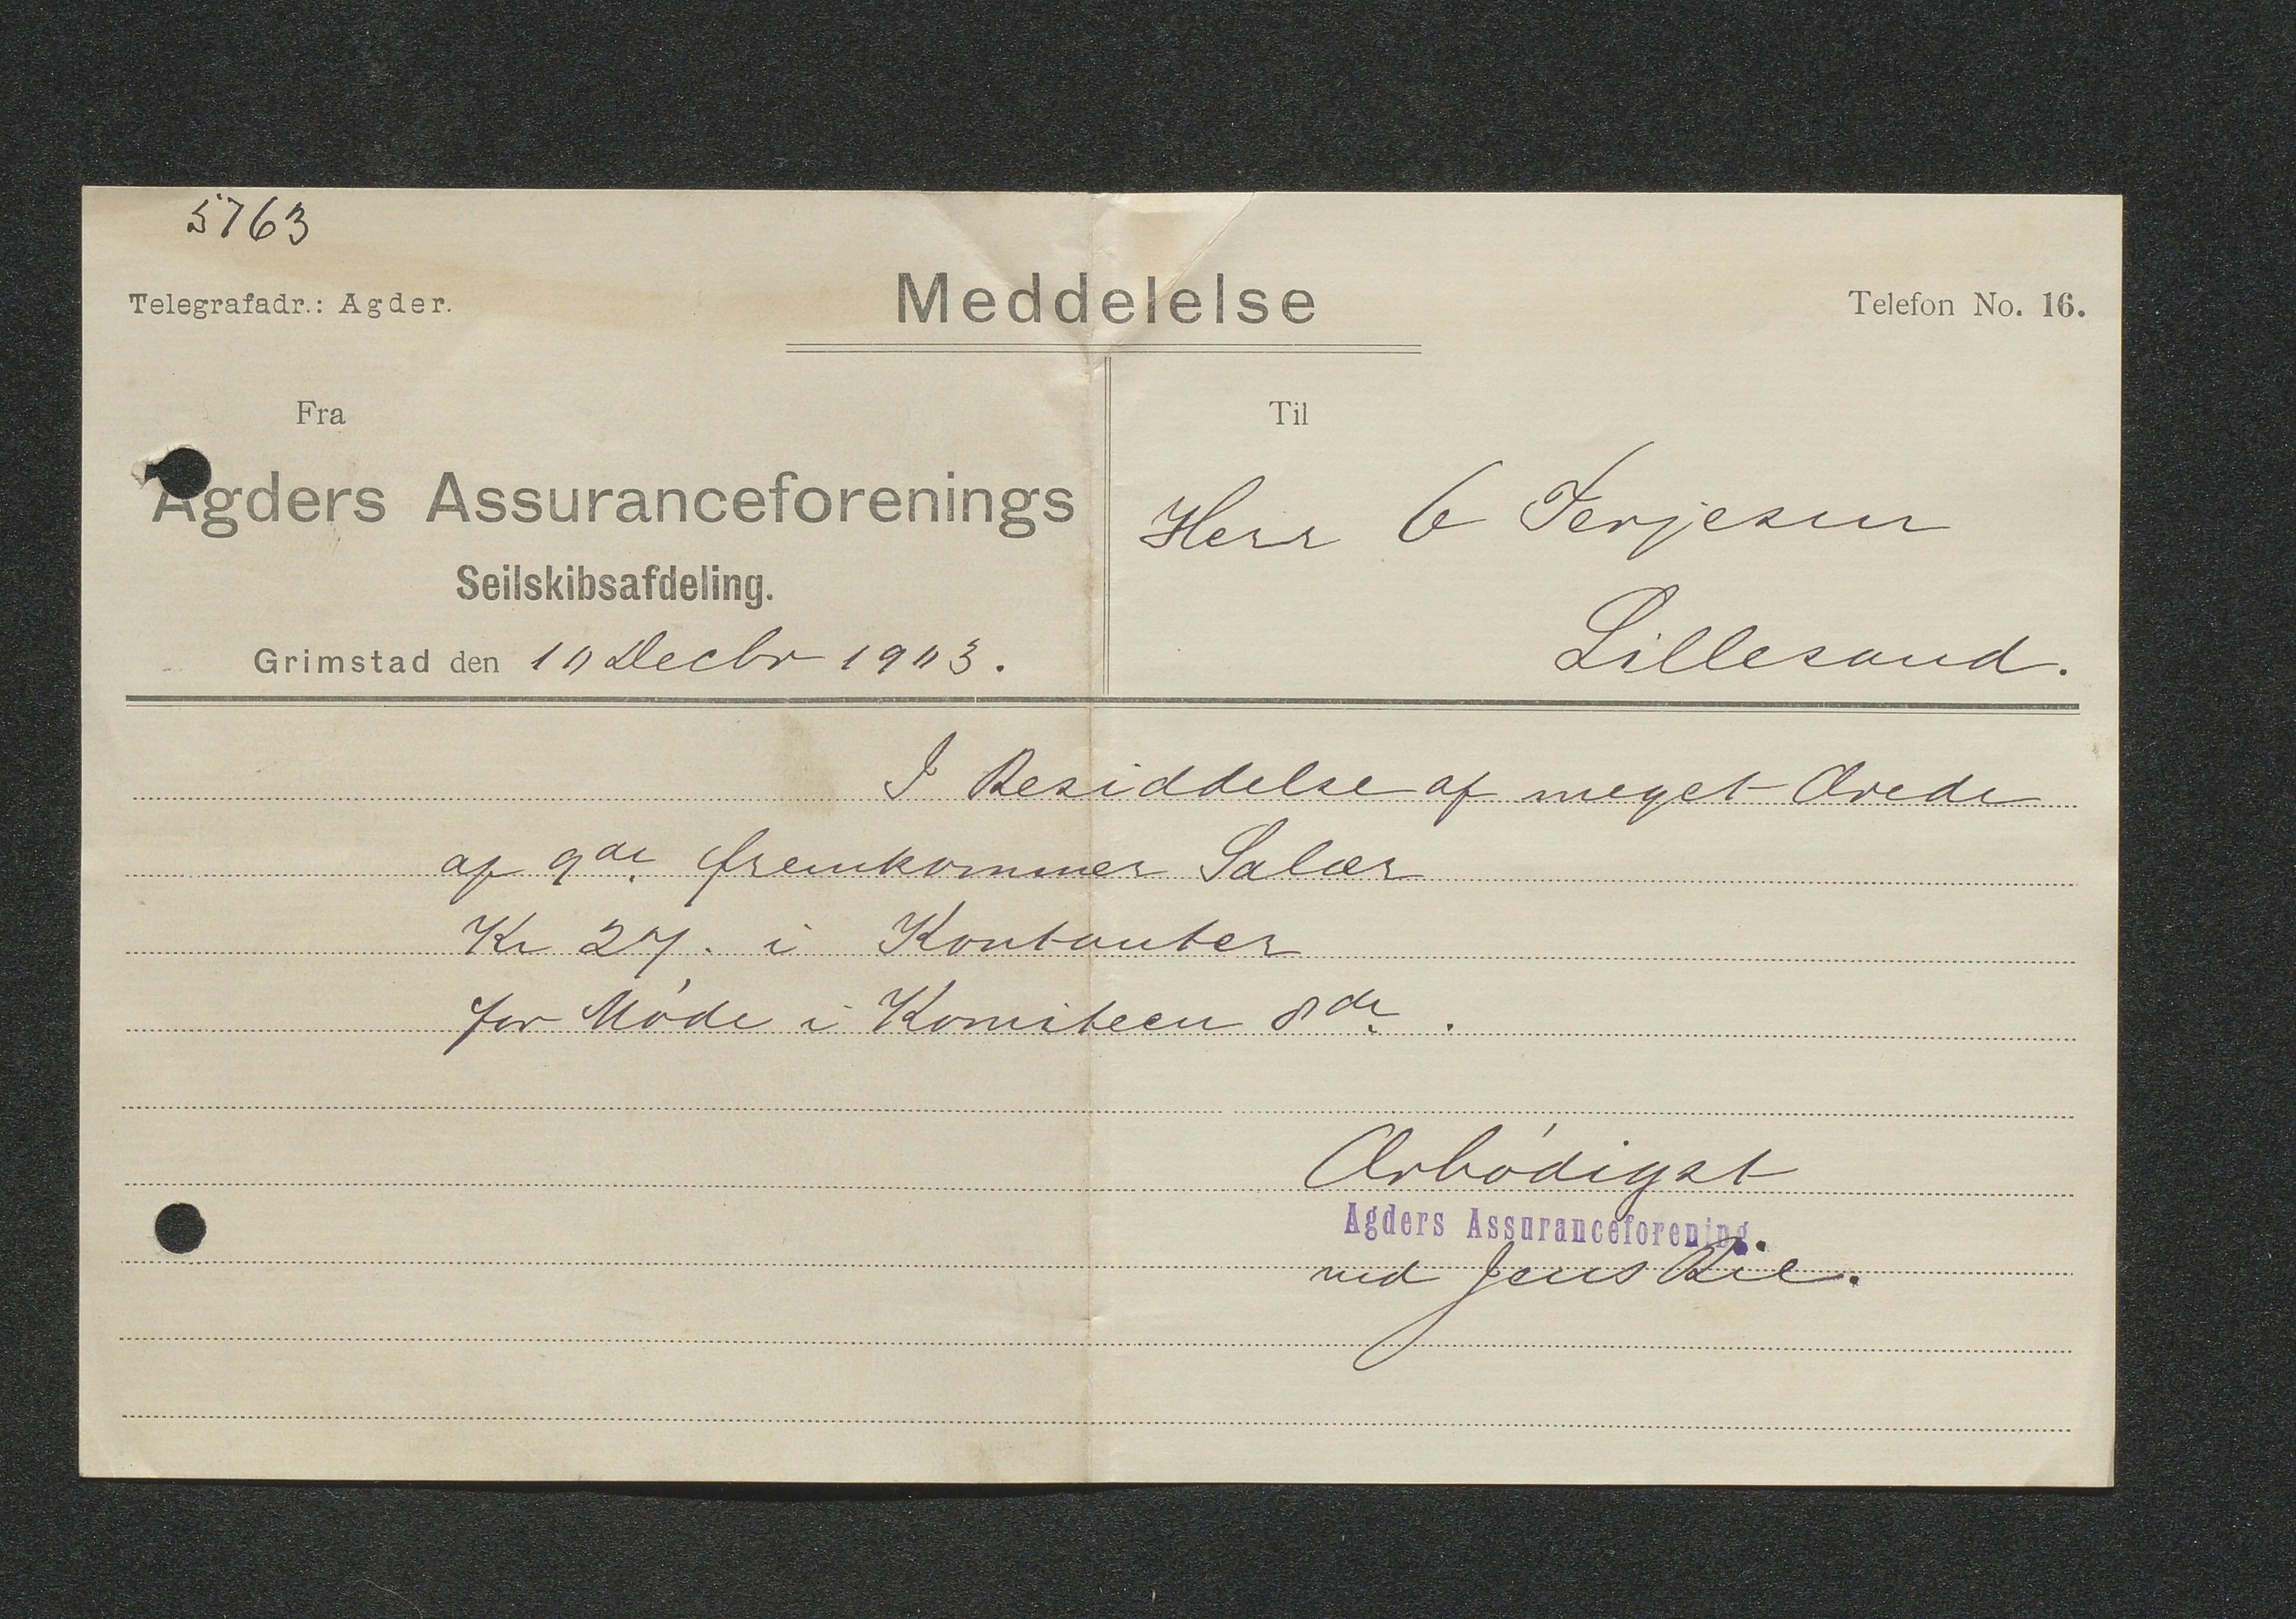 5763
Telegrafadr.: Agder.
Meddelelse
Telefon No. 16.
Fra
Agders Assuranceforenings
Seilskibsafdeling.
Grimstad den 10 Decbr 1903.
Til
Herr C Terjesen
Lillesand.
I Besiddelse af meget Ærede
af 9de fremkommer Salær
Kr 27. i Kontanter
for Móde i Komiteen 8de.
Ærbódigst
Agders Assuranceforening.
ved Jens Bie.